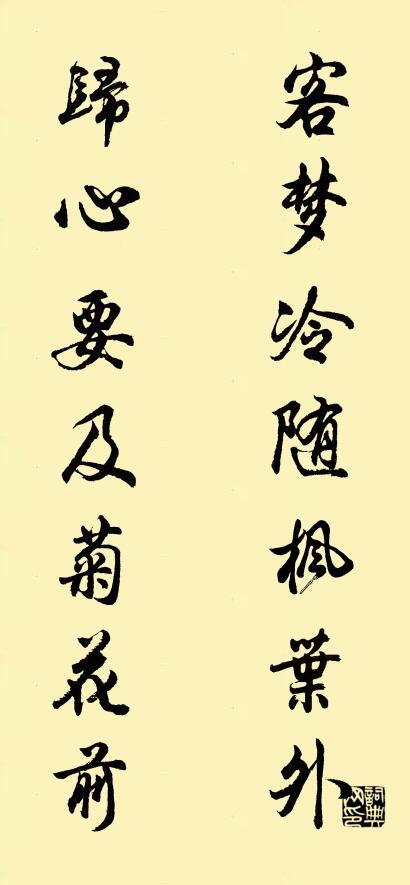 客梦冷随枫葉外
歸心要及菊花前
詞典